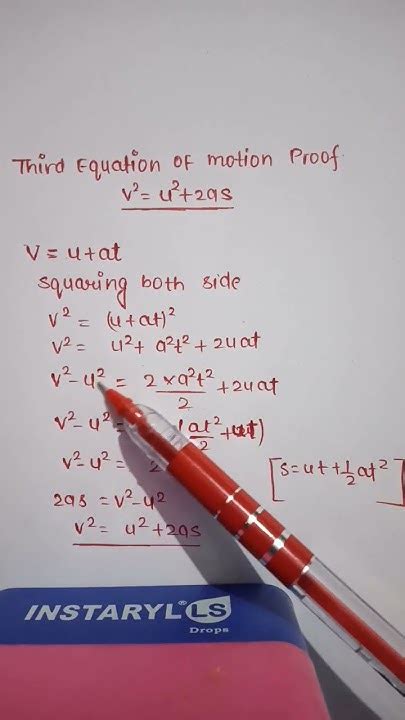 Third Equation of motion Proof
v² = u² + 2as
v = u + at
squaring both side
v² = (u + at)²
v² = u² + a²t² + 2uat
v² - u² = 2 × a²t²/2 + 2uat
v² - u² = (at²/2 + ut)
v² - u² = 2
[s = ut + 1/2 at²]
2as = v² - u²
v² = u² + 2as
INSTARYL LS
Drops